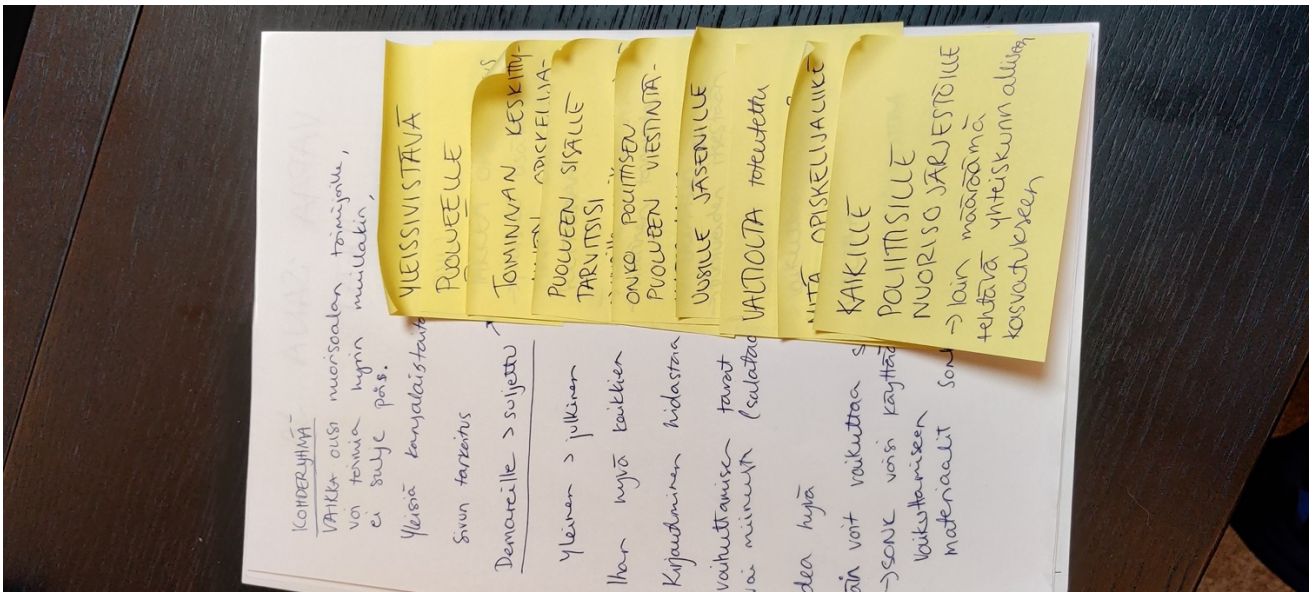 KOHDERYHMÄ-
VAIKKA OLISI nuorisoalan toimijoille,
voi toimia hyvin muillakin,
ei sulje pois.
Yleisiä kansalaistaito
Sivun tarkoitus
Demareille > suljettu
Yleinen > julkinen
Ihan hyvä kaikkien
Kirjautuminen hidastaa
vaikuttamisen tavat
vai miinusta (salataa
dea hyvä
äin voit vaikuttaa s
→ SONK voisi käyttää
vaikuttamiseen
materiaalit
YLEISSIVISTÄVÄ
PUOLUEELLE
TOIMINNAN KESKITTY-
OPISKELIJA-
PUOLUEEN SISÄLLE
TARVITSISI
ONKO POLIITTISEN
PUOLUEEN VIESTINTÄ-
UUSILLE JÄSENILLE
VALTIOLTA toteutettu
MITÄ OPISKELIJALIIKE
KAIKILLE
POLIITTISILLE
NUORISOJÄRJESTÖILLE
→ lain määräämä
tehtävä yhteiskunnalliseen
kasvatukseen